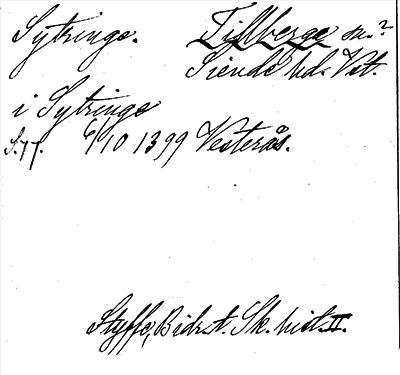 Sytringe. Tillberga sn.?
Siende hd. Vst.
i Sytringe
S. 77. 6/10 1399 Vesterås.
Styffe, Bidr. t. Sk. hist. II.